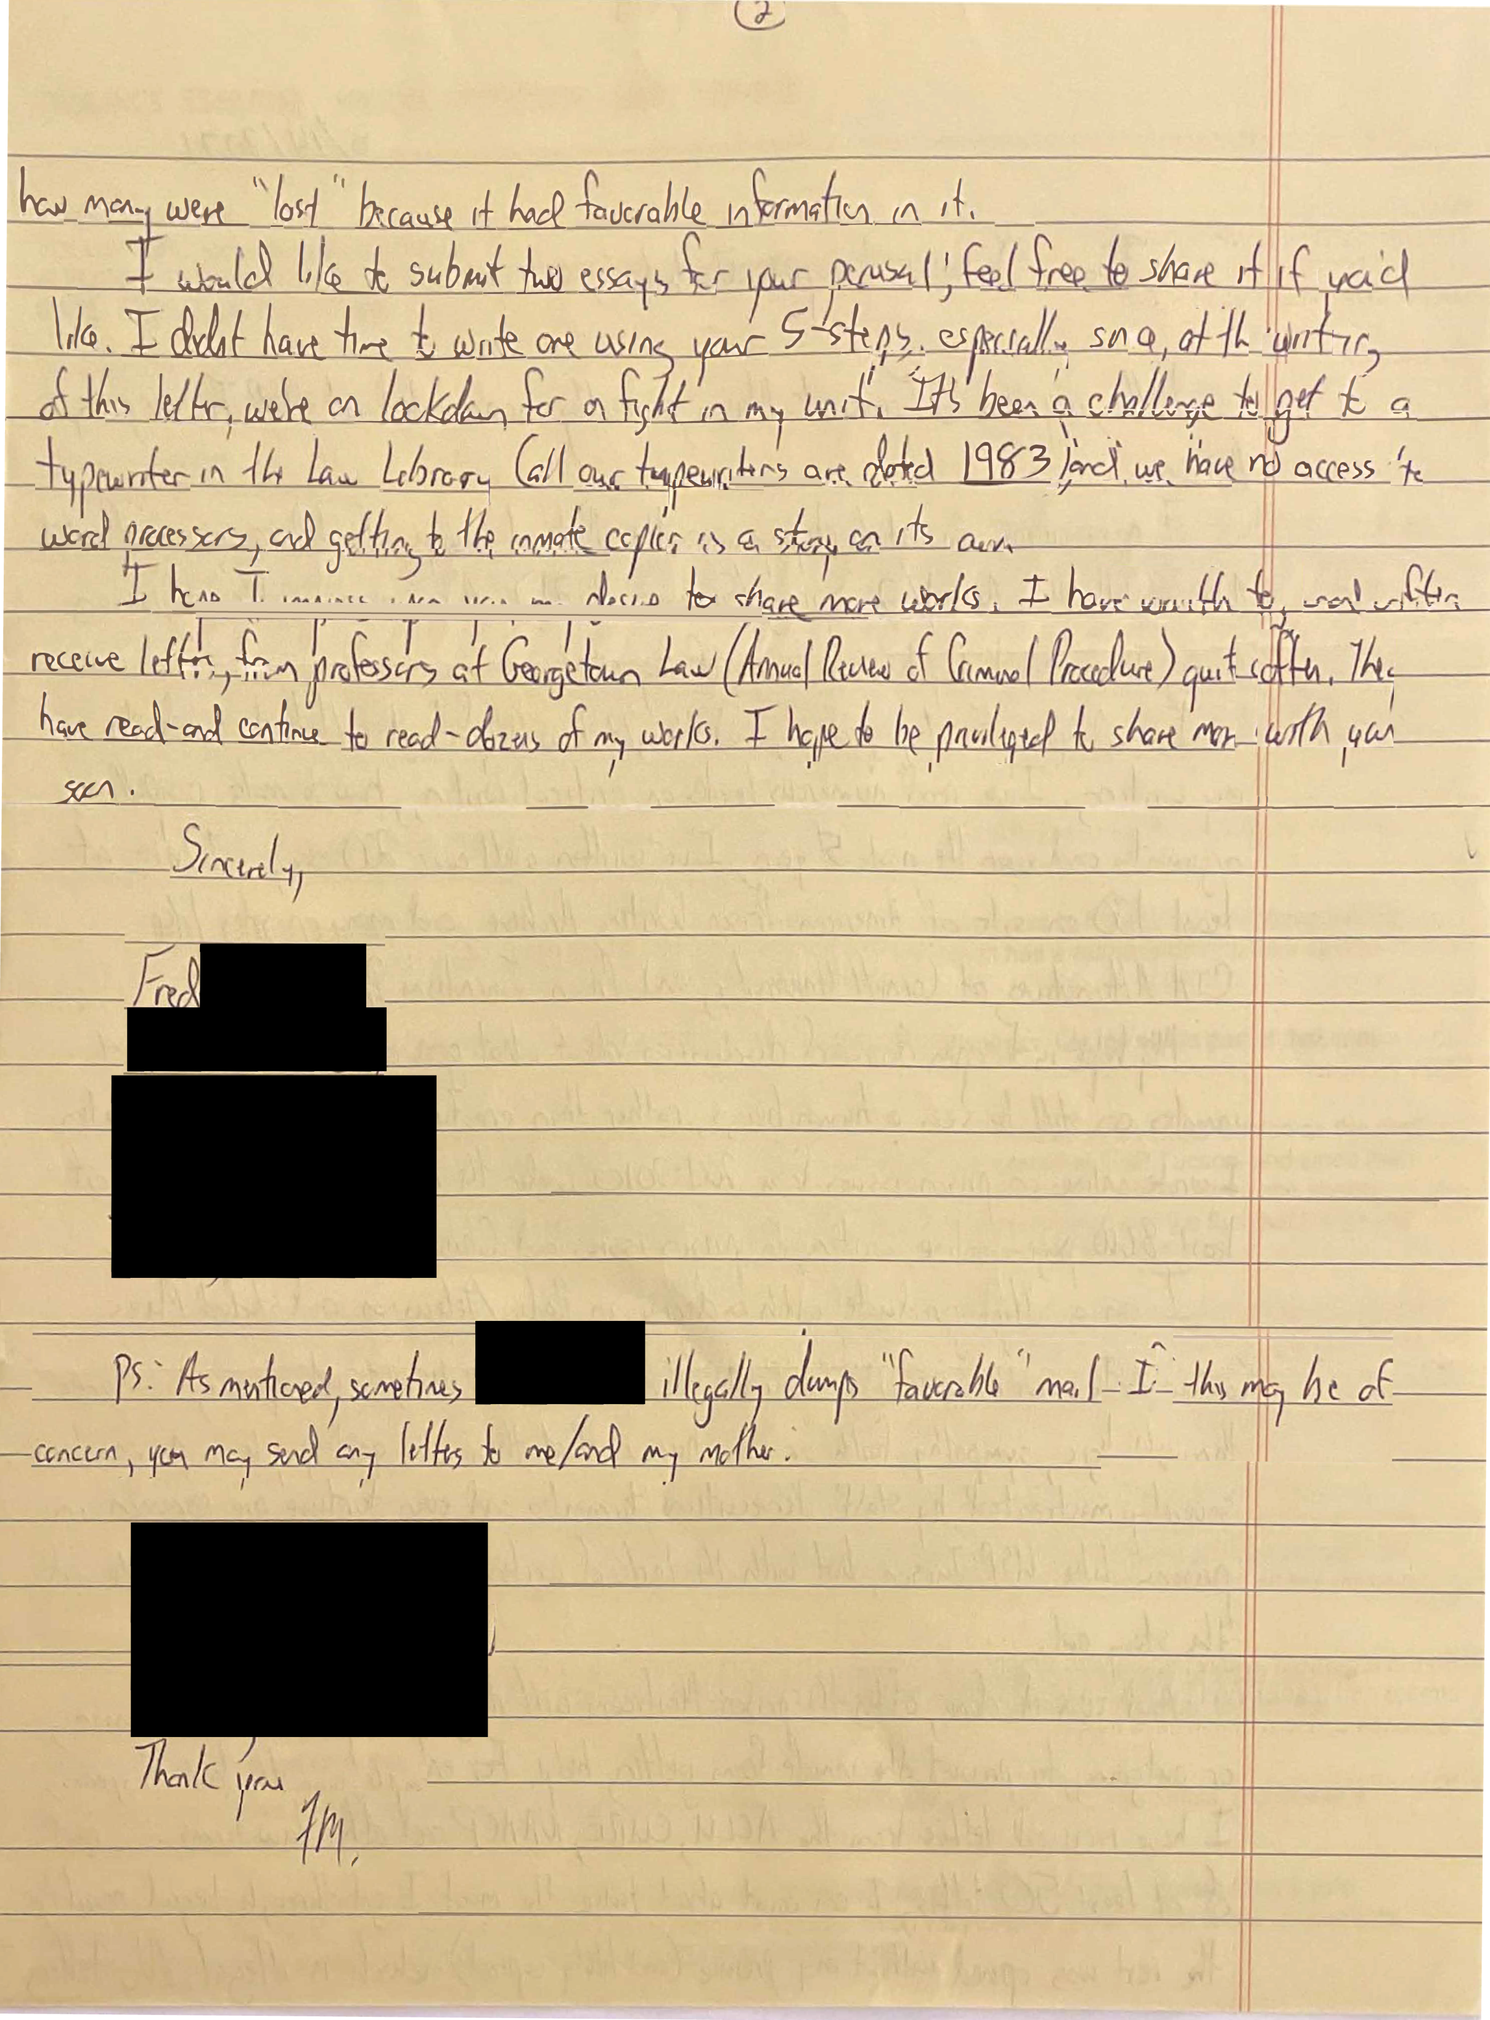 2
how many were "lost" because it had favorable information in it.
I would like to submit two essays for your perusal; feel free to share it if you'd
like. I didn't have time to write one using your 5-steps, especially since, at the writing
of this letter, we're on lockdown for a fight in my unit. It's been a challenge to get to a
typewriter in the Law Library (all our typewriters are dated 1983) and we have no access to
word processors, and getting to the inmate copier is a story on its own.
I hope I you my desire to share more works. I have written to, and often
receive letters from professors at Georgetown Law (Annual Review of Criminal Procedure) quite often. They
have read-and continue to read-dozens of my works. I hope to be privileged to share more with you
soon.
Sincerely,
Fred
Ps: As mentioned, sometimes illegally dumps "favorable" mail. If this may be of
concern, you may send any letters to me/and my mother:
Thank you
FM.